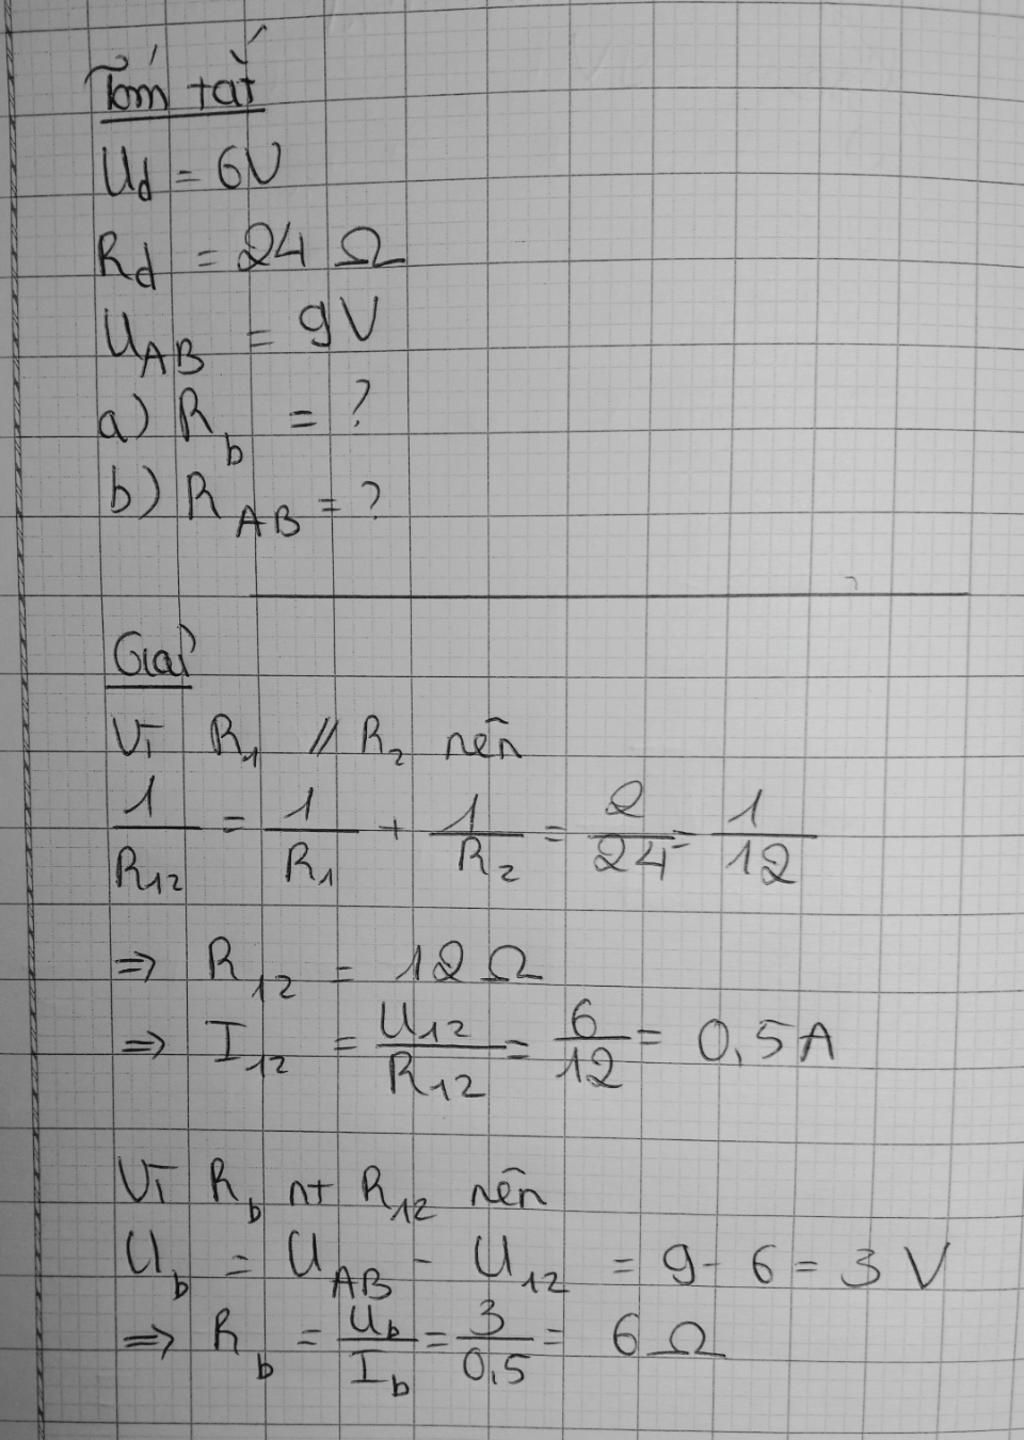 Tóm tắt
Uđ = 6V
Rđ = 24 Ω
UAB = 9V
a) Rb = ?
b) RAB = ?
Giải
Vì R1 // R2 nên
1/R12 = 1/R1 + 1/R2 = 2/24 = 1/12
⇒ R12 = 12 Ω
⇒ I12 = U12/R12 = 6/12 = 0,5A
Vì Rb nt R12 nên
Ub = UAB - U12 = 9 - 6 = 3 V
⇒ Rb = Ub/Ib = 3/0,5 = 6 Ω